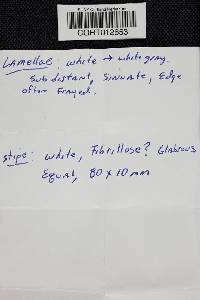 CORT012553
Lamellae: white → white gray.
Subdistant, Sinuate, Edge
often Frayed.
Stipe: white, Fibrillose? Glabrous
Equal, 80 x 10 mm